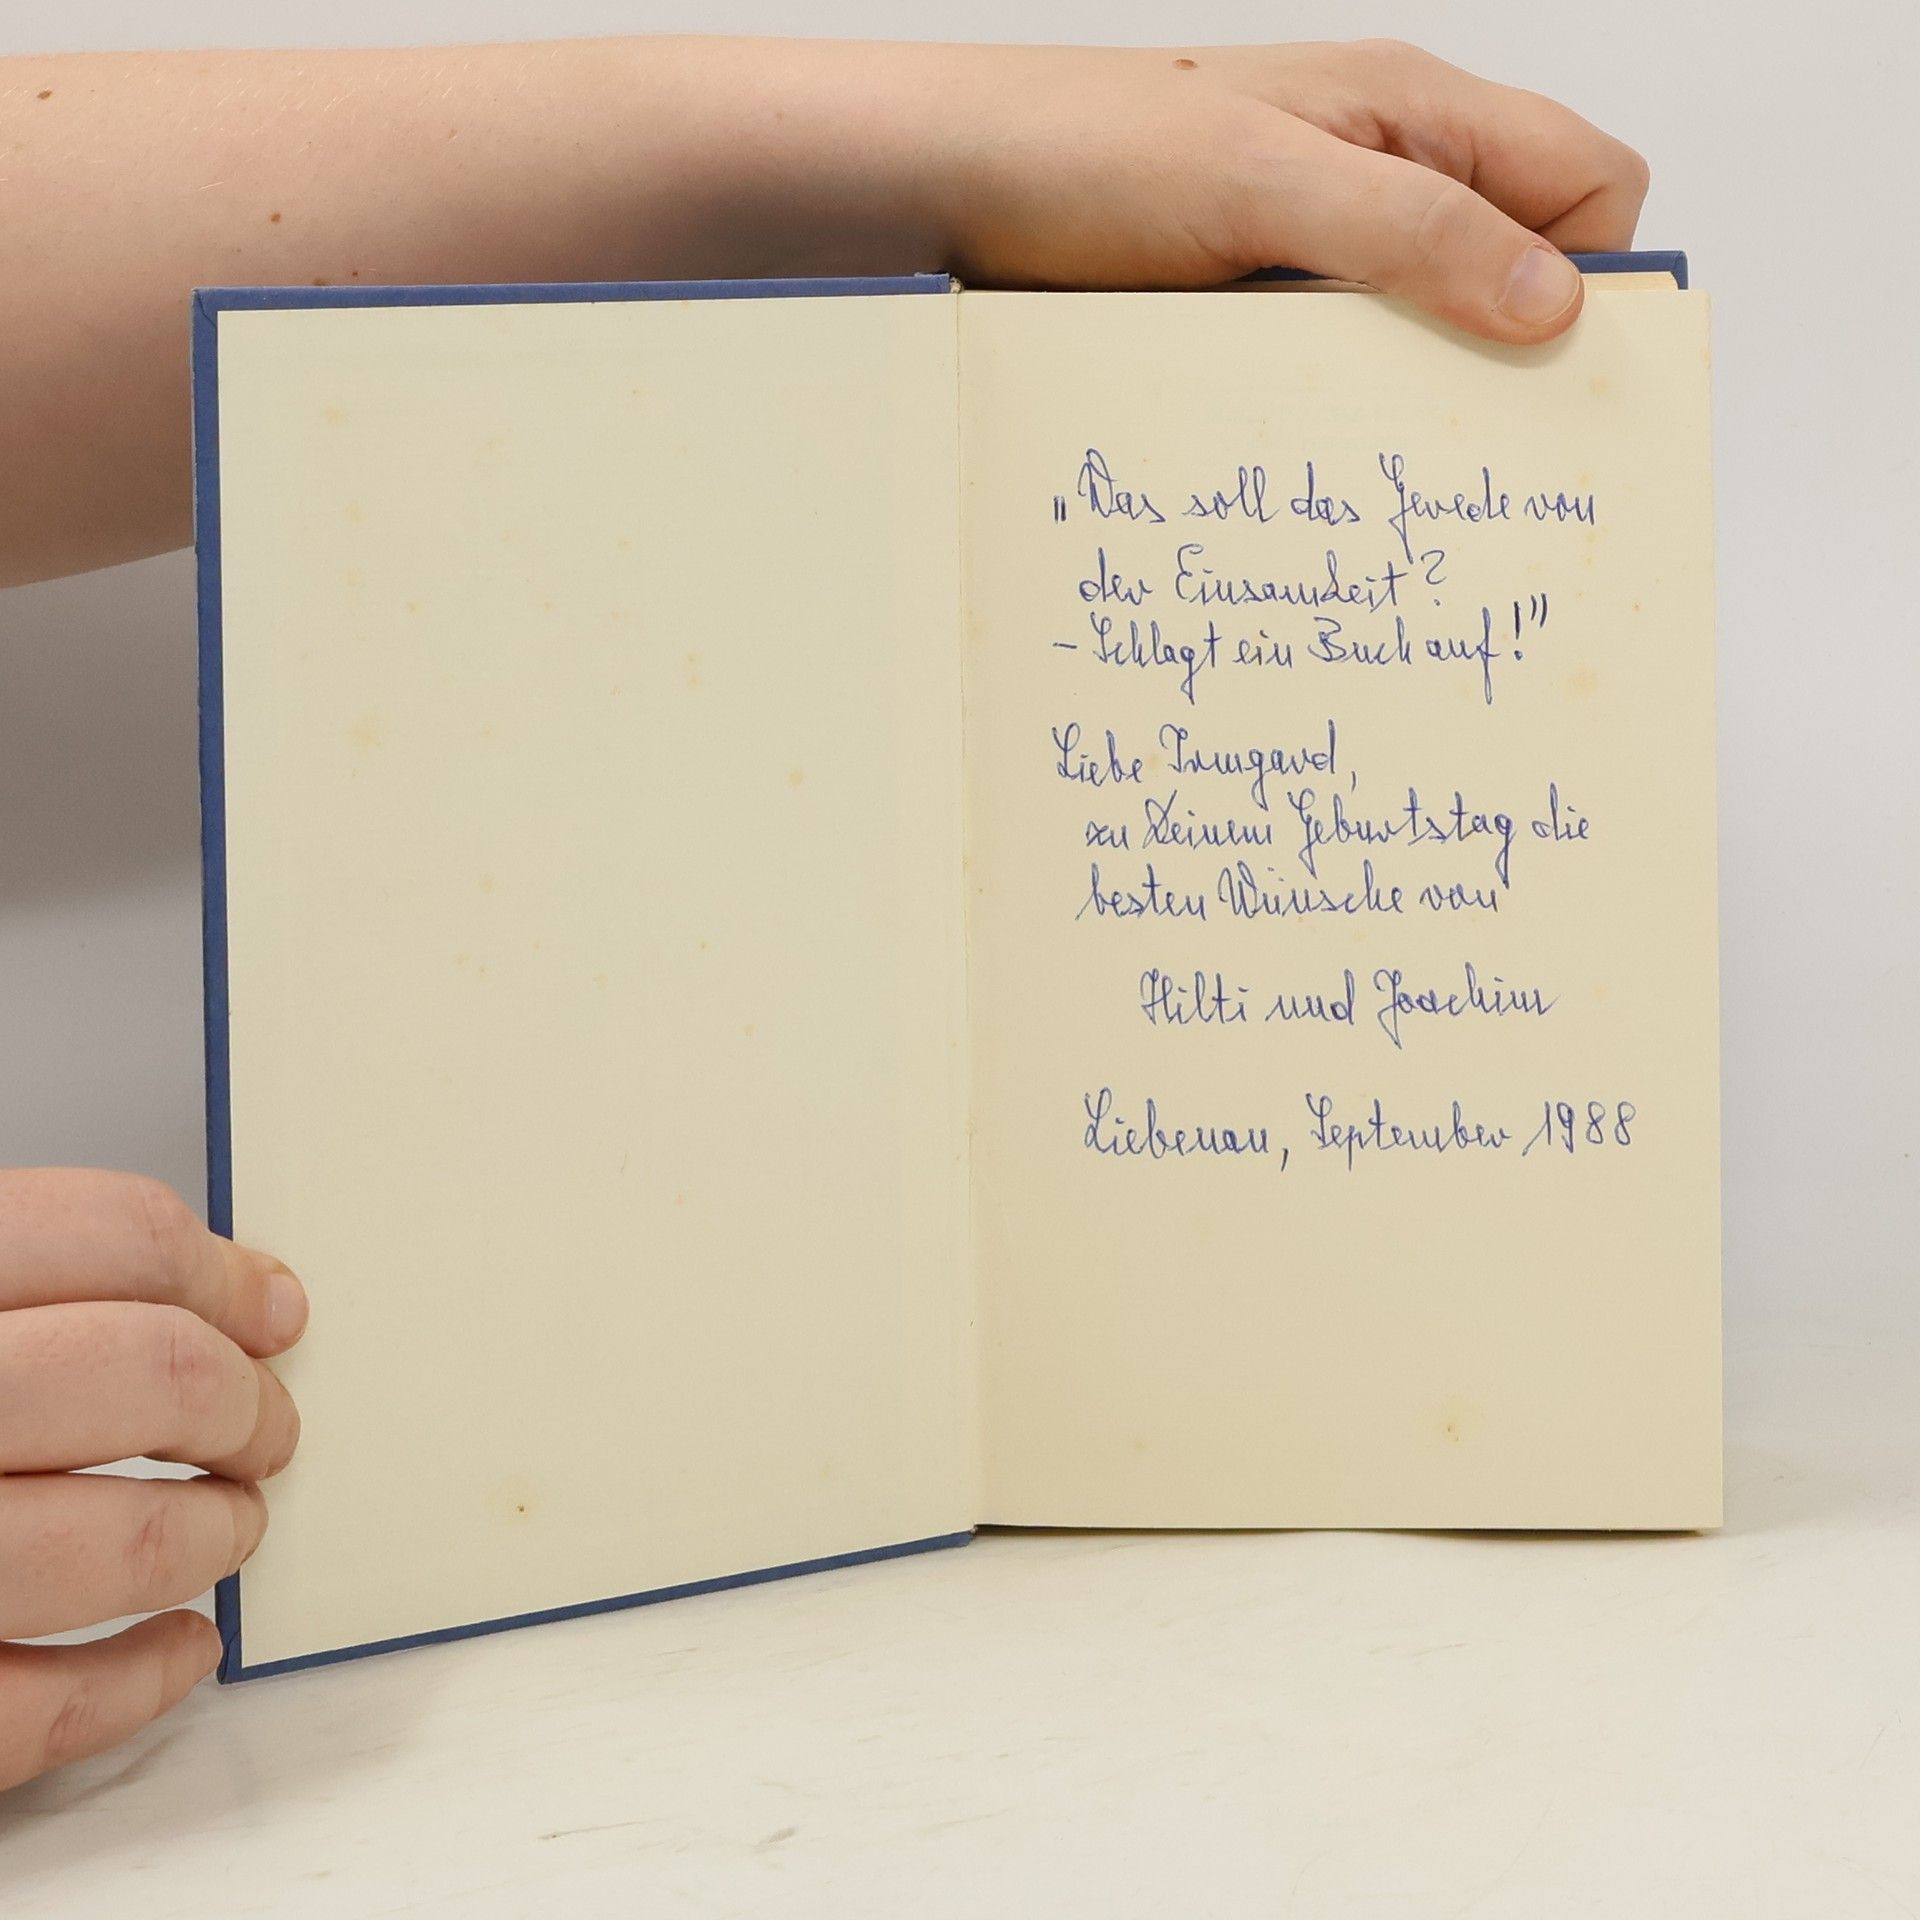 „Was soll das Gerede von
der Einsamkeit?
- Schlagt ein Buch auf!"
Liebe Irmgard,
zu Deinem Geburtstag die
besten Wünsche von
Hilti und Joachim
Liebenau, September 1988